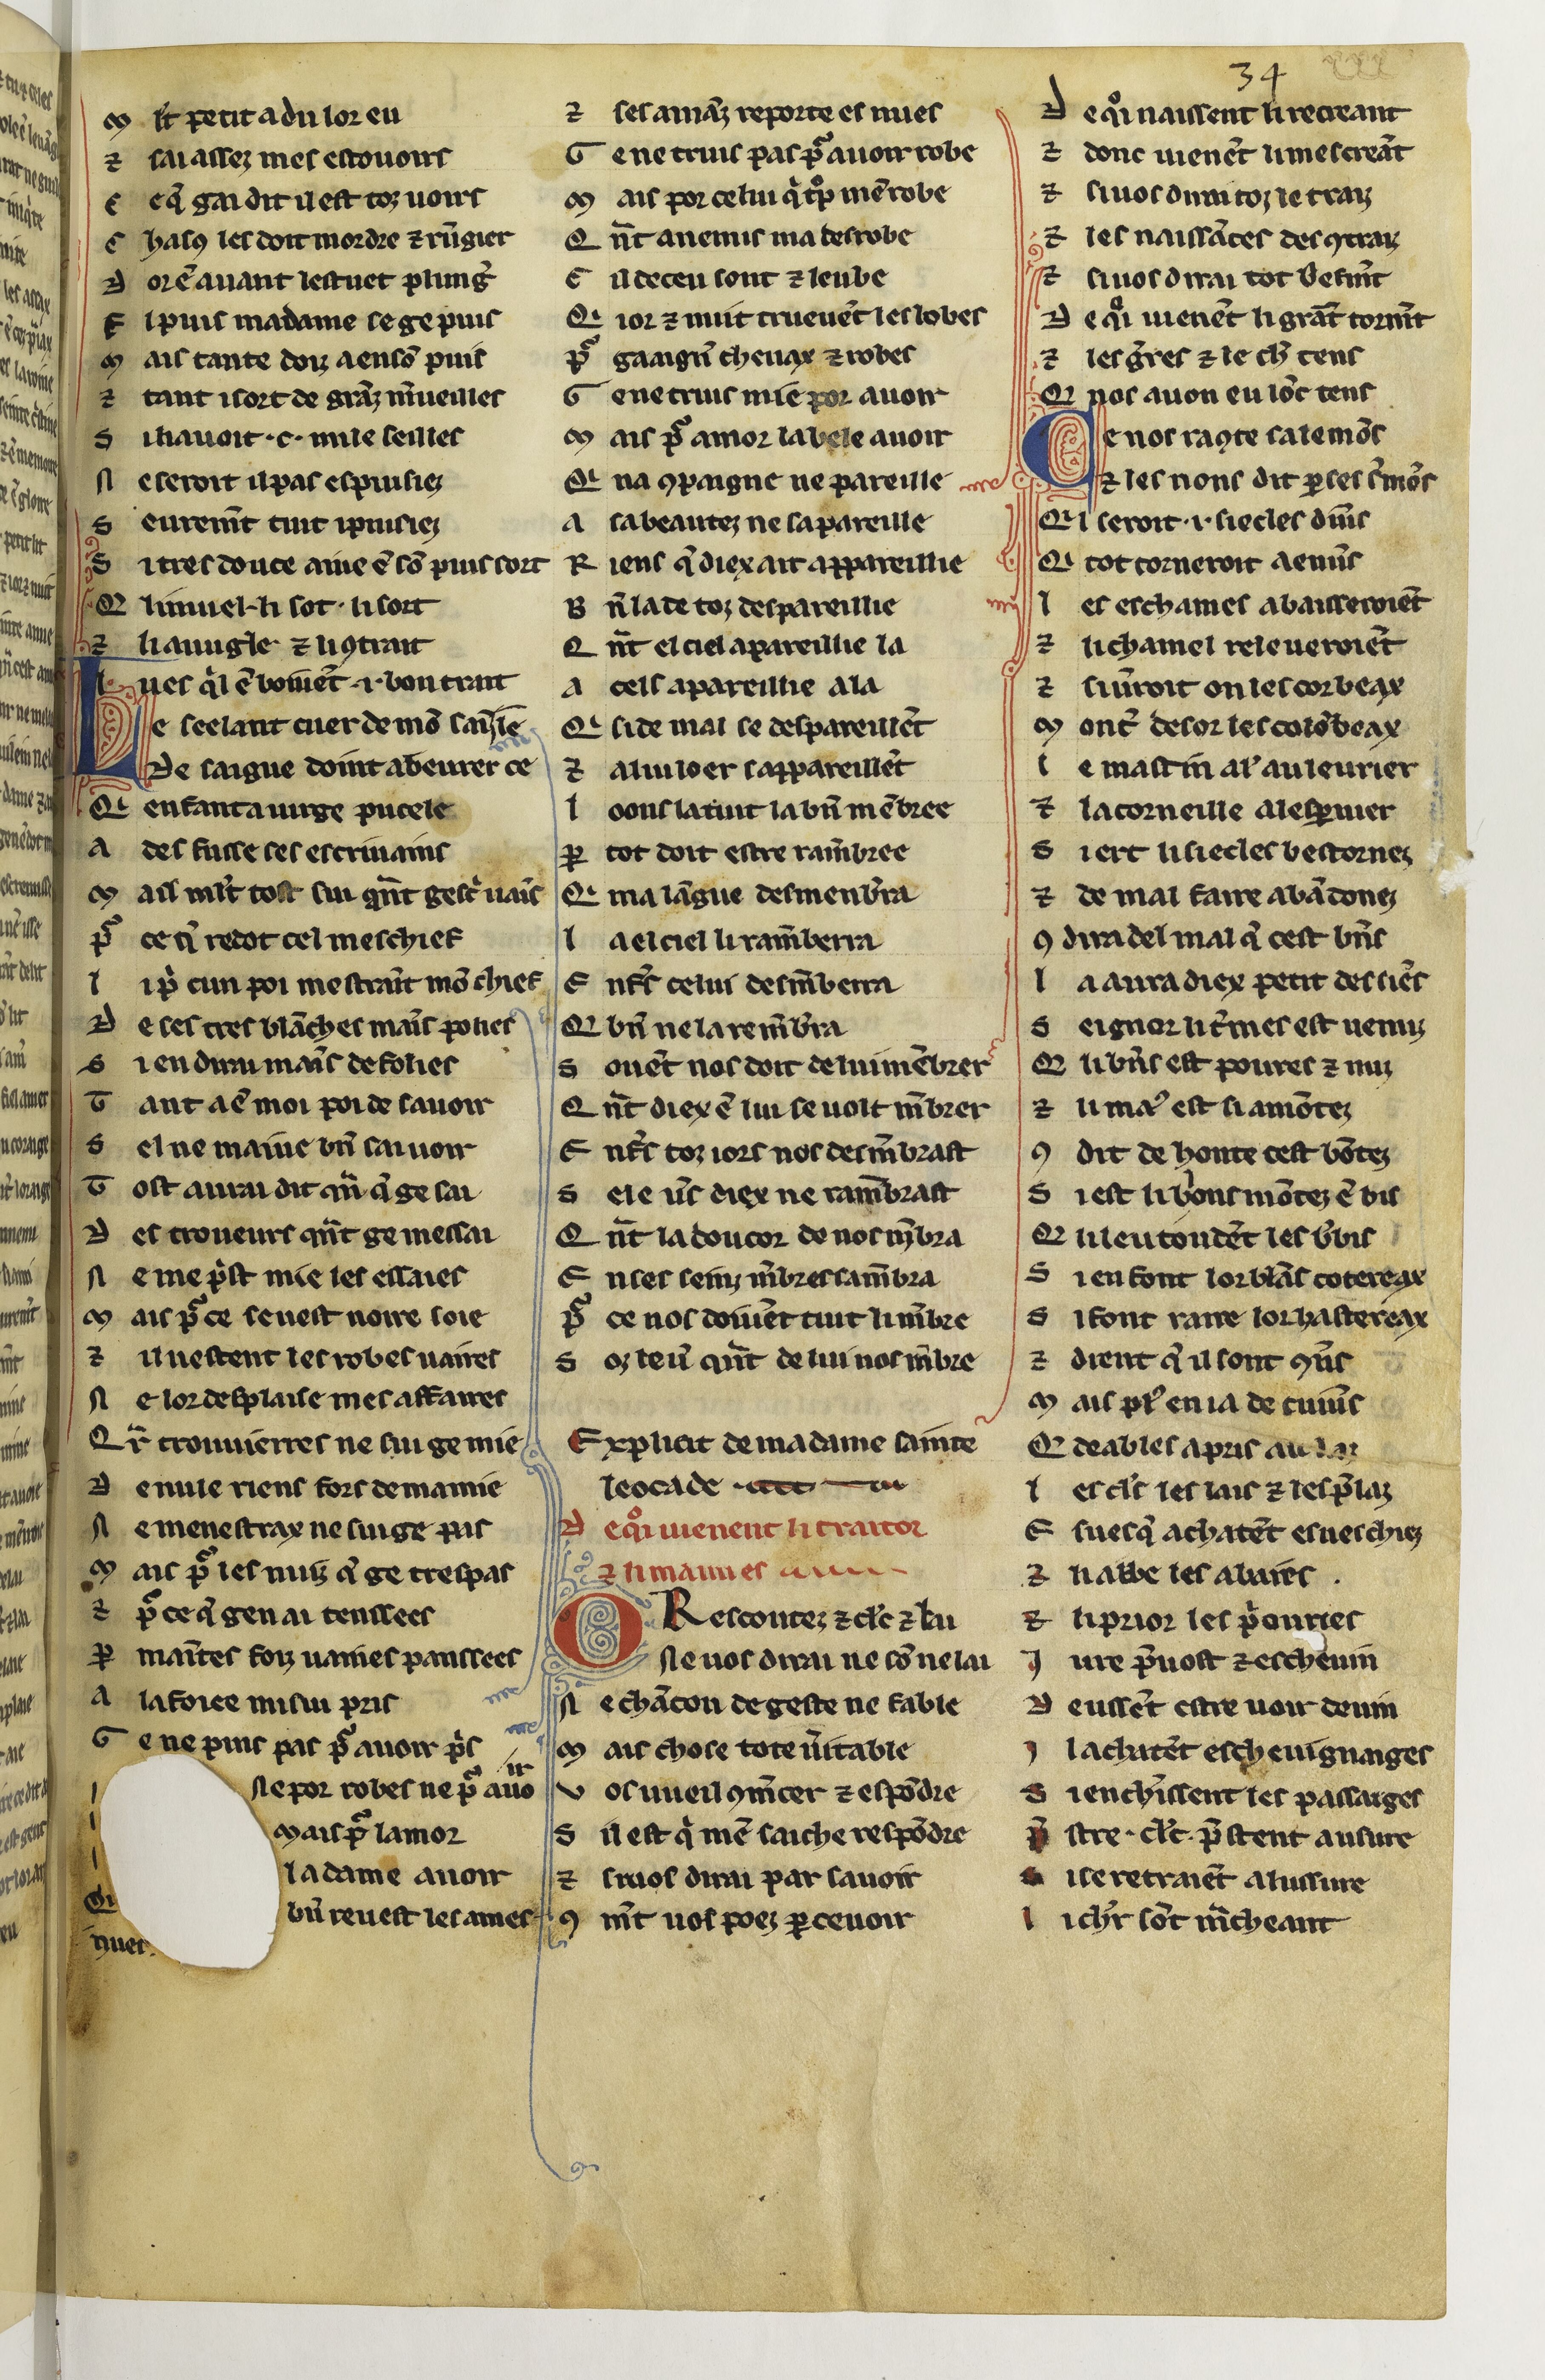 34
M lt petit a du lor eu
⁊ sai assez mes estovoirs
C e q̃ gai dit il est toz voirs
C hasꝯ les doit mordre ⁊ rũgier
D orẽ avant lestuet plungˀ
E l puis madame se ge puis
M ais tante doiz a en sõ puis
⁊ tant i sort de grãz mˀveilles
S il i avoit .c. mile seilles
N e seroit il pas espuisiez
S euremt̃ tuit i puisiez
S i tres douce aive ẽ sõ puis sort
Q li muel li sot li sort
⁊ li avugle ⁊ li ꝯtrait
L ues qˡl ẽ boivẽt .i. bon trait
L e seelant cuer de mõ sanc̃le
De saigue doint abeurer ce
Qi enfanta virge pucele
A des fusse ses escrivains
M ais ml̃t tost sui qñt gescˡ vaĩs
P̃ ce q̃ redot cel meschief
L i pˡ cun poi me straĩt mõ chief
D e ses tres blãches maĩs polies
S i en dirai maĩs de folies
T ant a ẽ moi poi de savoir
S el ne maiue bñ sai voir
T ost aurai dit qñ q̃ ge sai
D es troveurs qñt ge messai
N e me pˡst mie les essaies
M ais p̃ ce se vest noire soie
⁊ il vestent les robes vaires
N e lor desplaise mes affaires
Q r̃ trouvierres ne sui ge mie
D e nule riens fors de mamie
N e menestrax ne sui ge pas
M ais p̃ les nuiz q̃ ge trespas
⁊ p̃ ce q̃ gen ai tenssees
P̱ maĩtes foiz vaines panssees
A la foiee mi sui pris
G e ne puis pas p̃ avoir pˡs
Ne por robes ne p̃ avoir
Mais p̃ lamor
la dame avoir
Qi bñ revest les ames
nues
⁊ ses amãz reporte es nues
G e ne truis pas p̃ avoir robe
M ais por celui qˡ tp̊ mẽ robe
Q ñt anemis ma desrobe
C il deceu sont ⁊ leube
Qi ior ⁊ nuit truevẽt les lobes
P̃ gaaignˀ chevax ⁊ robes
G e ne truis mie por avoir
M ais p̃ amor la bele avoir
Qi na ꝯpaigne ne pareille
A sa beautez ne sapareille
R iens q̃ diex ait appareillie
B ñ la de toz despareillie
Q ñt el ciel apareillie la
A cels apareillie a la
Qi si de mal se despareillẽt
⁊ a lui loer sappareillẽt
L oons la tuit la bñ mẽbree
P̱ tot doit estre ramb̃ree
Qi ma lãgue desmenbˀra
L a el ciel li ramb̃erra
E nfˀs celui desmb̃erra
Q bñ ne la remb̃ra
S ovẽt nos doit de lui mẽbrer
Q ñt diex ẽ lui se volt mb̃rer
E nfˀs toz iors nos desmb̃rast
S e le vˀs diex ne ramb̃rast
Q ñt la doucor do nos mb̃ra
E n ses seinz mb̃res samb̃ra
P̃ ce nos doivẽt tuit li mb̃re
S oz leñ qñt de lui nos mb̃re
Explicit de madame sainte
leocade
D e qˡoi vienent li traitor
⁊ li mauves
O R escoutez ⁊ clˀc ⁊ lai
Ne vos dirai ne sõ ne lai
N e chãcon de geste ne fable
M ais chose tote vˀitable
V os vueil ꝯmˀcer ⁊ espõdre
S il est qˡ mẽ saiche respõdre
⁊ si vos dirai par savoir
ꝯ mt̃ vos poez ꝑcevoir
D e qˡoi naissent li recreant
⁊ donc vienẽt li mescreãt
⁊ si vos dirai toz le traiz
⁊ les naissãces des ꝯtraiz
⁊ si vos dirai tot brˀefmt̃
D e qˡoi vienẽt li grãt tormt̃
⁊ les gˀres ⁊ le chˀ tens
Q nos avon eu lõc tens
C e nos raꝯte salemõs
⁊ les nons dit ꝑ ses sˀmõs
Qi l seroit .i. siecles divˀs
Qi tot torneroit a envˀs
L es eschames abaisseroiẽt
⁊ li chamel releveroiẽt
⁊ si vˀroit on les corbeax
M ontˀ desor les colõbeax
L e mastin alˀ au levrier
⁊ la corneille a lespˀvier
S i ert li siecles bestornez
⁊ de mal faire abãdonez
ꝯ dira del mal q̃ cest bñs
L a aura diex petit des siẽs
S eignor li tˀmes est venuz
Q li bñs est povres ⁊ nuz
⁊ li maˀ est si amõtez
ꝯ dit de honte cest bõtez
S i est li bons mõtez ẽ bis
Q li leu tondẽt les bˀbis
S i en font lor blãs cotereax
S i font raire lor hastereax
⁊ dient q̃ il sont ꝯvˀs
M ais plˀ en ia de cuivˀs
Q deables a pris au laz
L es clˀs les lais ⁊ les pˀlaz
E suesq̃ achatẽt esveschiez
⁊ li abbe les abaies
⁊ li prior les pˡourtes
J uire pˀvost ⁊ eschevin
D eussẽt estre voir devin
I l achatẽt eschevignages
S i enchˀissent les passaiges
P̃ stre clˀc pˀstent a usure
S i se retraiẽt a lussure
L i chˀr sõt mˀcheant